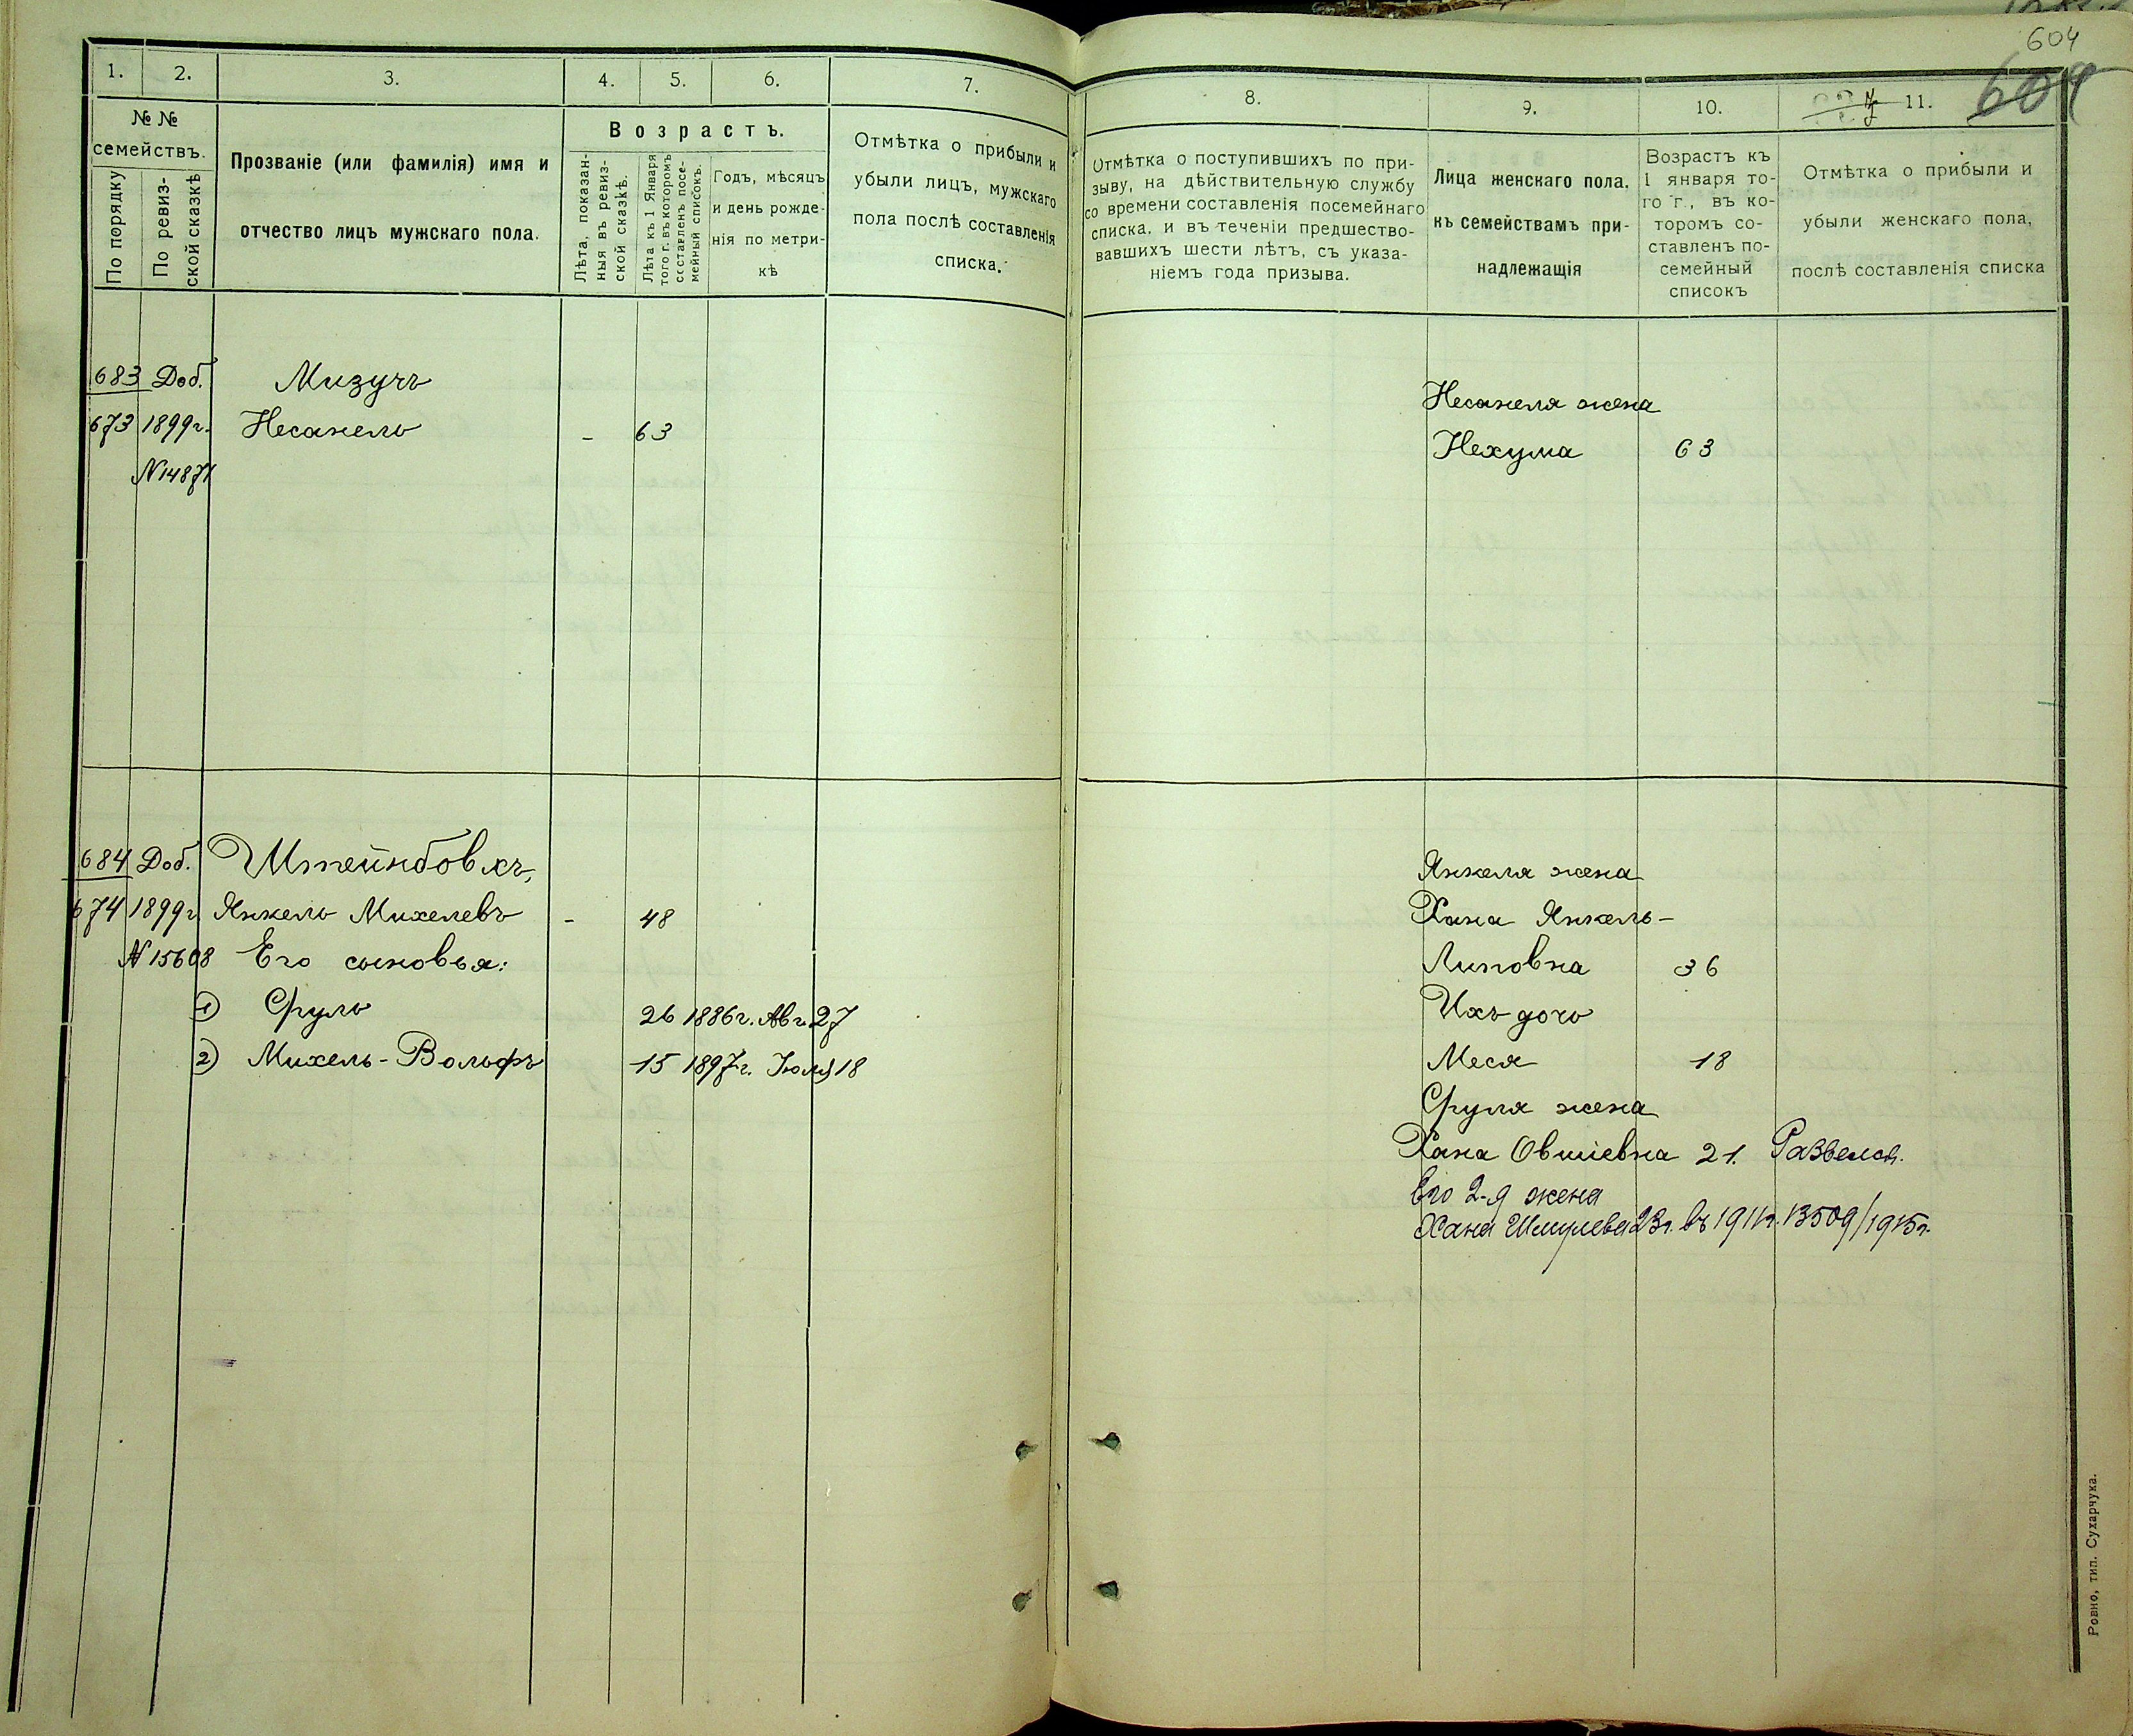 604
609
1.
2.
3.
4.
5.
6.
7.
№ №
семействъ.
По порядку
По ревиз-
ской сказкѣ
Прозваніе (или фамилія) имя и
отчество лицъ мужскаго пола.
Возрастъ.
Лѣта, показан-
ныя въ ревиз-
ской сказкѣ.
Лѣта къ 1 Января
того г. въ которомъ
составленъ посе-
мейный списокъ.
Годъ, мѣсяцъ
и день рожде-
нія по метри-
кѣ
Отмѣтка о прибыли и
убыли лицъ, мужскаго
пола послѣ составленія
списка.
683 Доб. Мизучъ
673 1899г. Несанель - 63
N14871
684 Доб. Штейнбовхъ,
674 1899г Янкель Михелевъ - 48
N 15608 Его сыновья:
1) Сруль 26 1886г. Авг. 27
2) Михель-Вольфъ 15 1897г. Іюля 18
8.
9.
10.
11.
Отмѣтка о поступившихъ по при-
зыву, на дѣйствительную службу
со времени составленія посемейнаго
списка, и въ теченіи предшество-
вавшихъ шести лѣтъ, съ указа-
ніемъ года призыва.
Лица женскаго пола.
къ семействамъ при-
надлежащія
Возрастъ къ
1 января то-
го г., въ ко-
торомъ со-
ставленъ по-
семейный
списокъ
Отмѣтка о прибыли и
убыли женскаго пола,
послѣ составленія списка
Несанеля жена
Нехума 63
Янкеля жена
Хана Янкель-
Липовна 36
Ихъ дочь
Меся 18
Сруля жена
Хана Овшіевна 21. Развелся.
Его 2-я жена
Хана Шмулева 23г. въ 1911г. 13509/1915г.
Ровно, тип. Сухарчука.